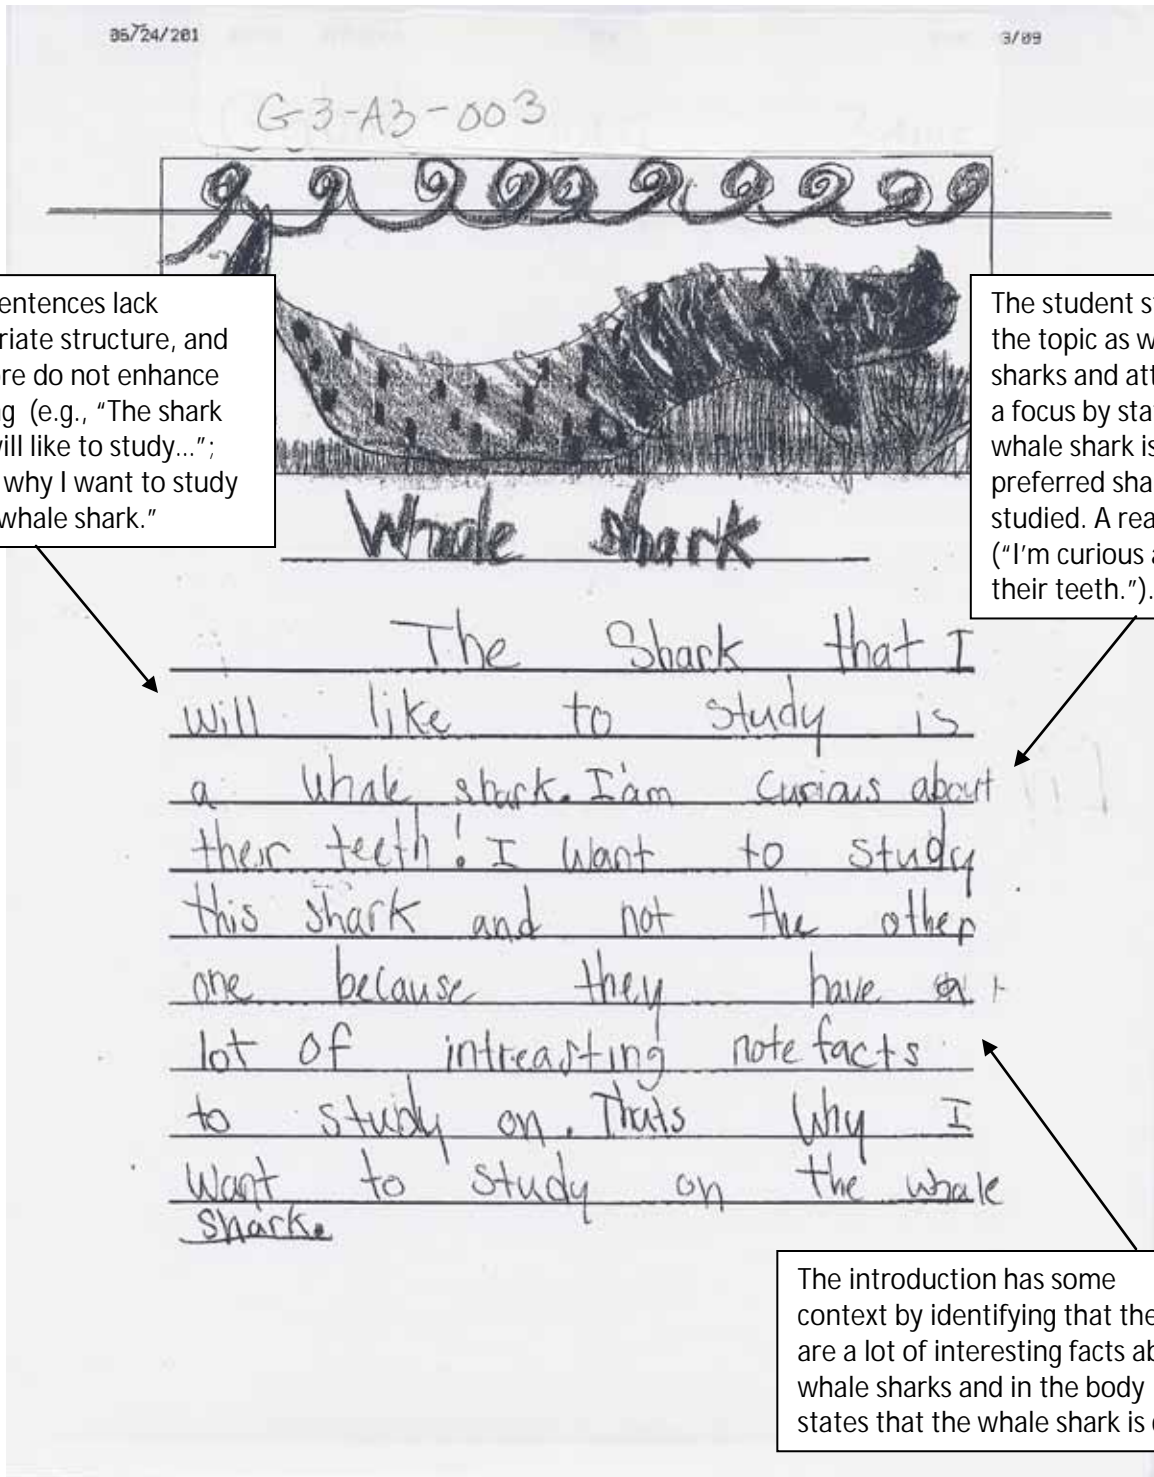 05/24/201
3/09
G3-A3-003
entences lack
riate structure, and
re do not enhance
g (e.g., “The shark
vill like to study...”;
why I want to study
whale shark.”
The student st
the topic as w
sharks and att
a focus by stat
whale shark is
preferred sha
studied. A rea
(“I’m curious a
their teeth.”).
Whale shark
The Shark that I
will like to study is
a whale shark. I'am curious about
their teeth! I want to study
this shark and not the other
one because they have a
lot of intreasting note facts
to study on. Thats why I
want to study on the whale
shark.
The introduction has some
context by identifying that the
are a lot of interesting facts ab
whale sharks and in the body
states that the whale shark is